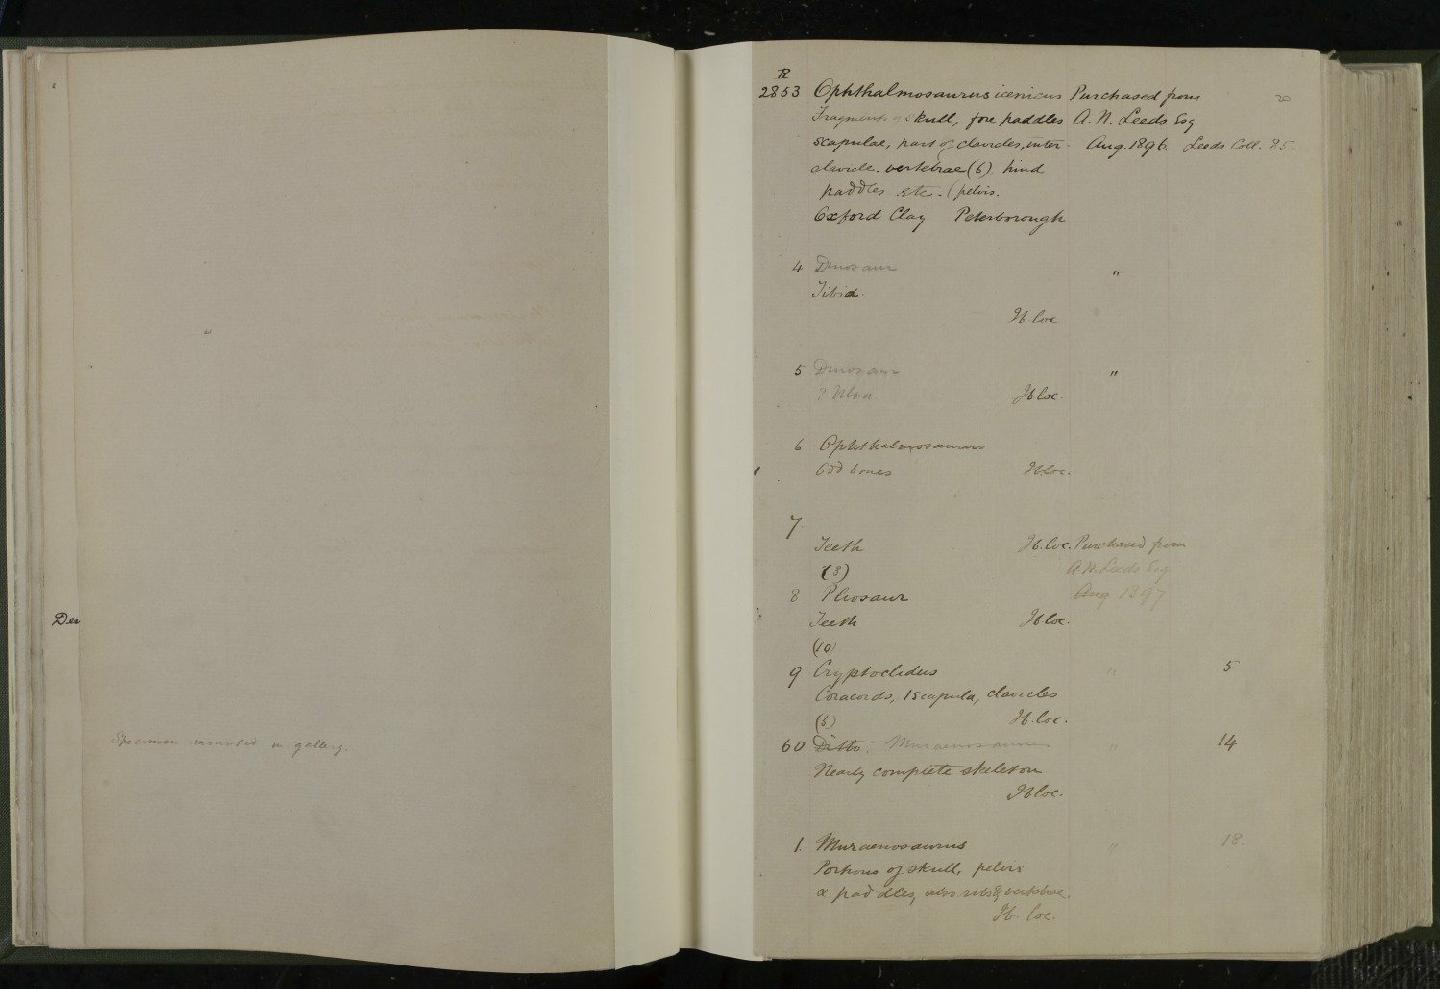 Den
Specimen mounted in gallery.
R
2853 Ophthalmosaurus icenicus Purchased from 20
Fragments of skull, fore paddles A. N. Leeds Esq
scapulae, part of clavicles, inter- Aug. 1896. Leeds Coll. 85.
clavicle. vertebrae (6) hind
paddles etc. (pelvis.
Oxford Clay Peterborough
4 Dinosaur "
Tibia.
Ib. loc
5 Dinosaur "
? Ulna Ib loc.
6 Ophthalmosaurus
Odd bones Ib. loc.
7.
Teeth Ib. loc. Purchased from
(3) A. N. Leeds Esq
8 Pliosaur Aug 1897
Teeth Ib loc.
(10)
9 Cryptoclidus " 5
Coracoids, 1 scapula, clavicles
(5) Ib. loc.
60 Ditto. Muraenosaurus " 14
Nearly complete skeleton
Ib loc.
1. Muraenosaurus " 18.
Portions of skull, pelvis
& paddles, also ribs & vertebrae.
Ib. loc.